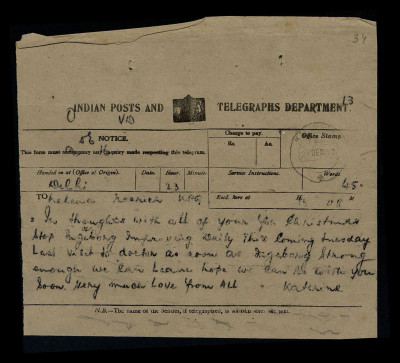 34
INDIAN POSTS AND TELEGRAPHS DEPARTMENT.
NOTICE.
This form must accompany any inquiry made respecting this telegram.
Charge to pay.
Rs. As.
Office Stamp.
Handed in at (Office of Origin). Date. Hour. Minute. Service Instructions. Words.
Delhi 23 45
TO
Recd. here at H. M.
In thoughts with all of you for Christmas
Stop Ingeborg Improving Daily This Coming Tuesday
Last visit to doctor as soon as Ingeborg strong
enough we can leave hope we can be with you
soon very much love from all - Katerine
N.B.—The name of the Sender, if telegraphed, is written after the text.